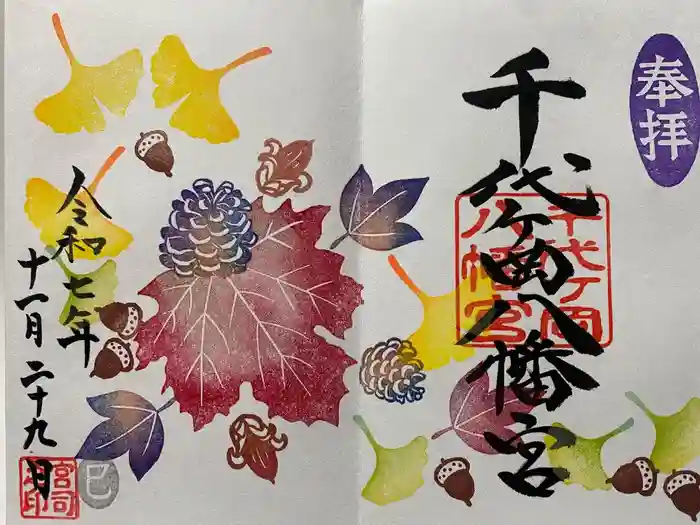 奉拝
千代ケ岡八幡宮
千代ケ岡
八幡宮
令和七年
十一月二十九日
宮司
之印
巳